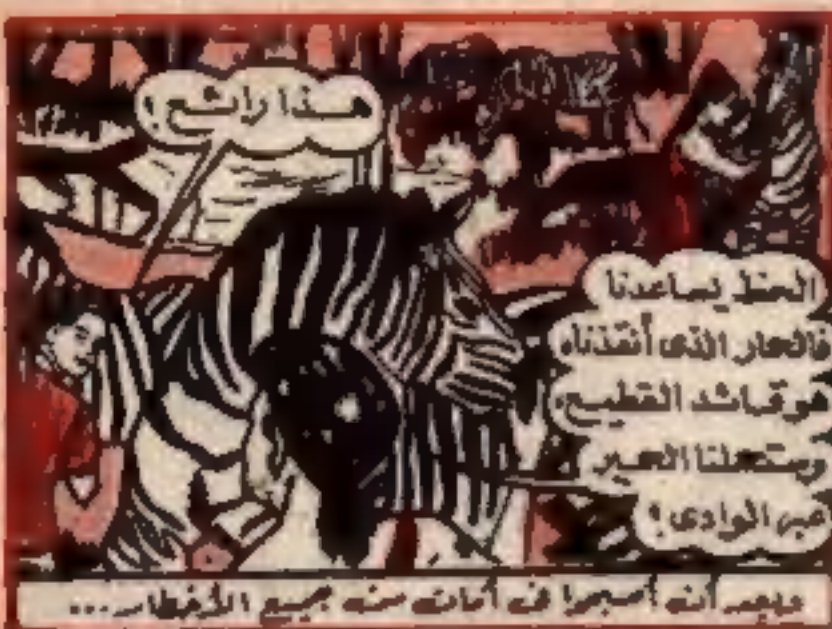 هذا رائع!
الحظ يساعدنا
فالحمار الذى أنقذناه
هو قائد القطيع،
وستحملنا الحمير
عبر الوادى!
وبعد أن أصبحوا فى أمان من جميع الأخطار...